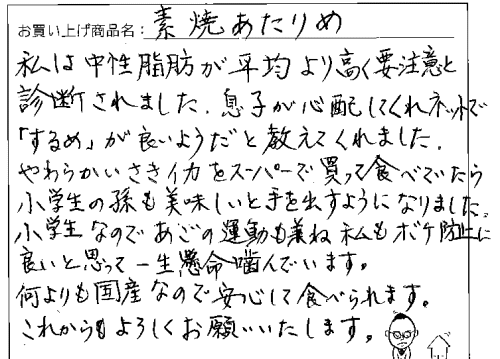 お買い上げ商品名: 素焼あたりめ
私は中性脂肪が平均より高く要注意と
診断されました。息子が心配してくれネットで
「するめ」が良いようだと教えてくれました。
やわらかいさきイカをスーパーで買って食べていたら
小学生の孫も美味しいと手を出すようになりました。
小学生なのであごの運動も兼ね私もボケ防止に
良いと思って一生懸命噛んでいます。
何よりも国産なので安心して食べられます。
これからもよろしくお願いいたします。